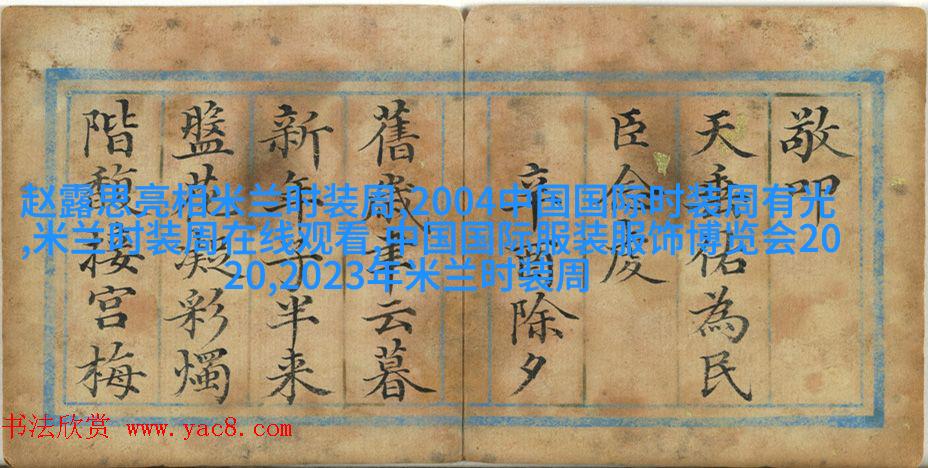 敬叩
天垂祐為民
臣
辛酉除夕
舊歲聿云暮
新年子半来
盤花凝彩燭
階馥接宮梅
赵露思亮相米兰时装周,2004中国国际时装周有光
,米兰时装周在线观看,中国国际服装服饰博览会20
20,2023年米兰时装周
书法欣赏 www.yac8.com